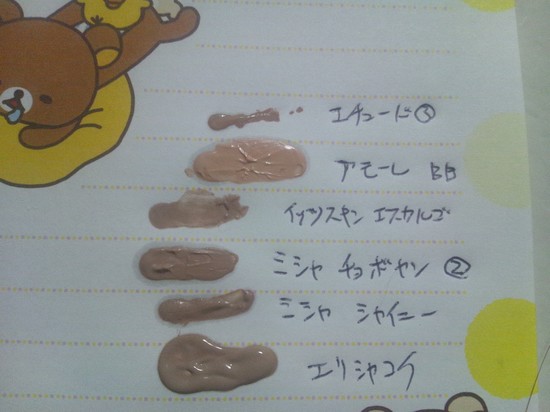 エチュード①
アモーレ BB
イッツスキン エスカルゴ
ミシャ チョボヤン ②
ミシャ シャイニー
エリシャコイ